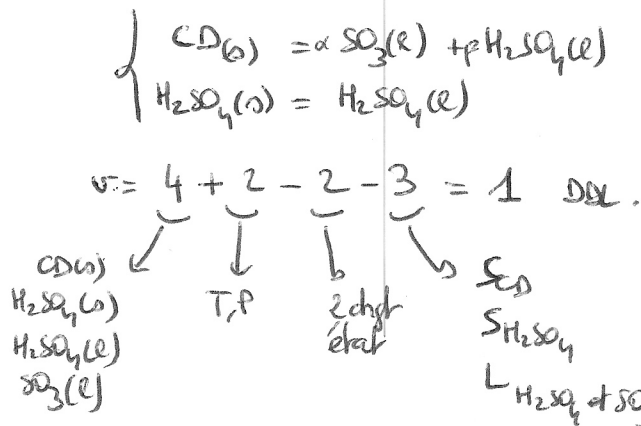 CD(s) = α SO₃(l) + β H₂SO₄(l)
H₂SO₄(s) = H₂SO₄(l)
v = 4 + 2 - 2 - 3 = 1 DDL.
CD(s)
H₂SO₄(s)
H₂SO₄(l)
SO₃(l)
T,P
2 chgt
état
S_CD
S_H₂SO₄
L_H₂SO₄ et SO